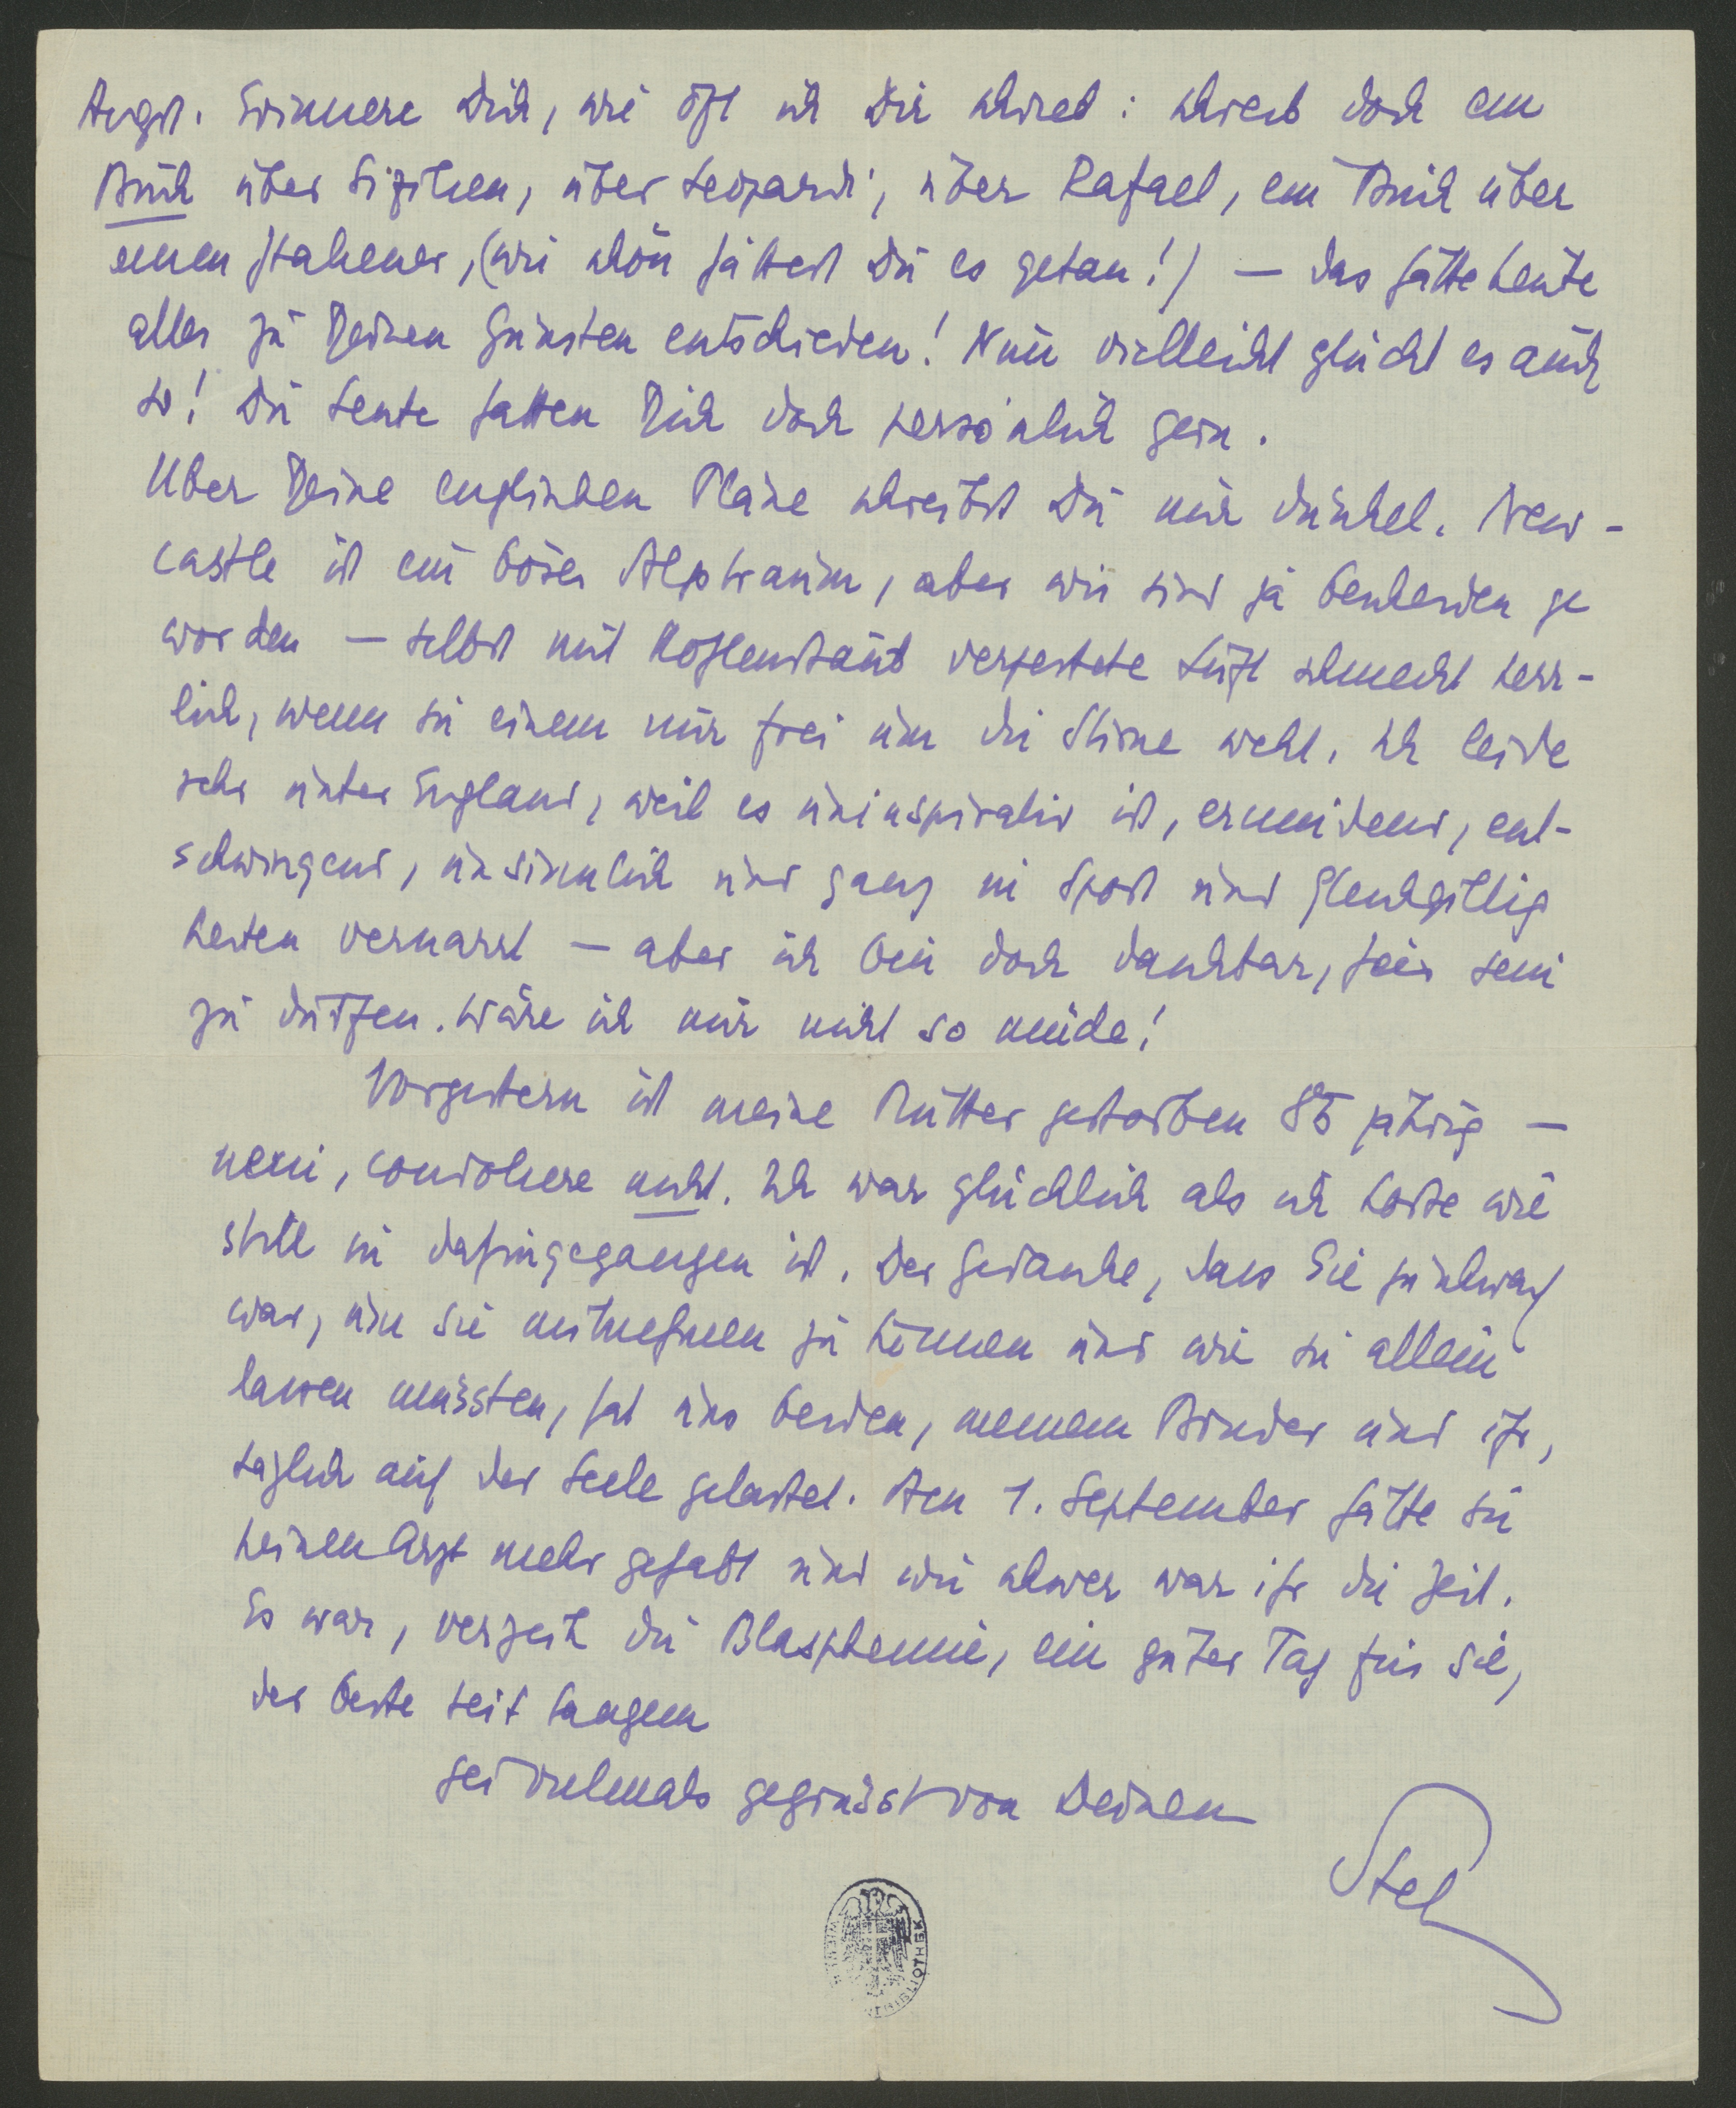 Angst. Erinnere Dich, wie oft ich Dir schrieb: schreib doch ein
Buch über Sizilien, über Leopardi, über Rafael, ein Buch über
einen Italiener, (wie schön hättest Du es getan!) — das hätte heute
alles zu Deinen Gunsten entschieden! Nun vielleicht glückt es auch
so! Die Leute hatten Dich doch persönlich gern.
Über Deine englischen Pläne schreibst Du nur dunkel. New-
castle ist ein böser Alptraum, aber wir sind ja bescheiden ge
worden — selbst mit Kohlenstaub verpestete Luft schmeckt herr-
lich, wenn sie einem nur frei um die Stirne weht. Ich leide
sehr unter England, weil es uninspirativ ist, ermüdend, ent-
schwingend, unsinnlich und ganz in Sport und Gleichgiltig
keiten vernarrt — aber ich bin doch dankbar, hier sein
zu dürfen. Wäre ich nur nicht so müde!
Vorgestern ist meine Mutter gestorben 85 jährig —
nein, condoliere nicht. Ich war glücklich als ich hörte wie
still sie dahingegangen ist. Der Gedanke, dass Sie zu schwach
war, um sie mitnehmen zu können und wir sie allein
lassen mussten, hat uns beiden, meinem Bruder und ihr,
täglich auf der Seele gelastet. Am 1. September hätte sie
keinen Arzt mehr gehabt und wie schwer war ihr die Zeit.
Es war, verzeih die Blasphemie, ein guter Tag für sie,
der beste seit langem
Sei vielmals gegrüsst von Deinem
Stef